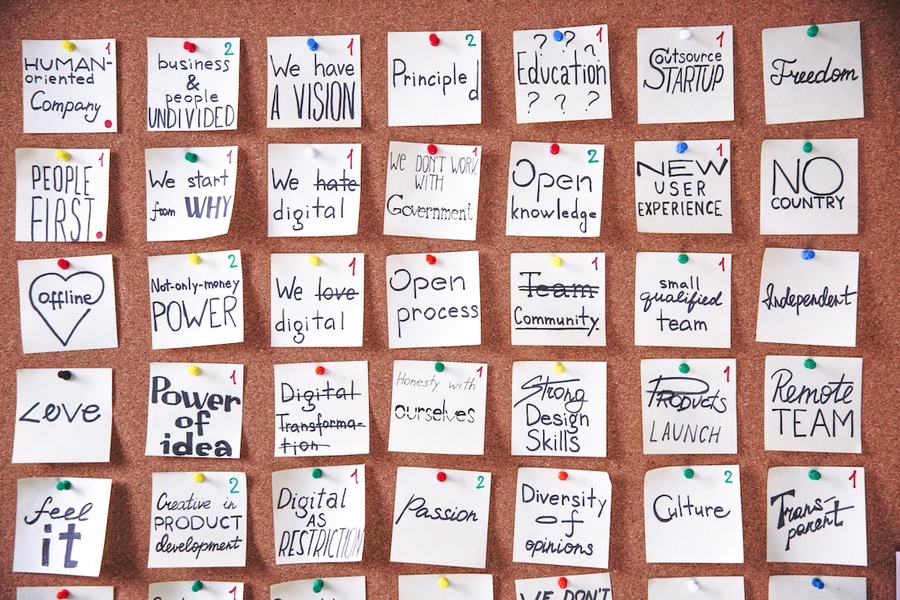 HUMAN-
oriented
Company
1
business
&
people
UNDIVIDED
2
We have
A VISION
1
Principled
2
? ? 1
Education
? ? ?
Outsource
STARTUP
1
Freedom
PEOPLE
FIRST
1
We start
from WHY
1
We hate
digital
1
WE DON'T WORK
WITH
Government
1
Open
knowledge
2
NEW
USER
EXPERIENCE
1
NO
COUNTRY
offline
Not-only-money
POWER
2
We love
digital
1
Open
process
Team
Community
1
small
qualified
team
1
Independent
Love
Power
of
idea
1
Digital
Transforma-
tion
Honesty with
ourselves
1
Strong
Design
Skills
Products
LAUNCH
1
Remote
TEAM
feel
it
Creative in
PRODUCT
development
2
Digital
AS
RESTRICTION
1
Passion
2
Diversity
of
opinions
Culture
2
Trans-
parent
1
1
1
WE DON'T